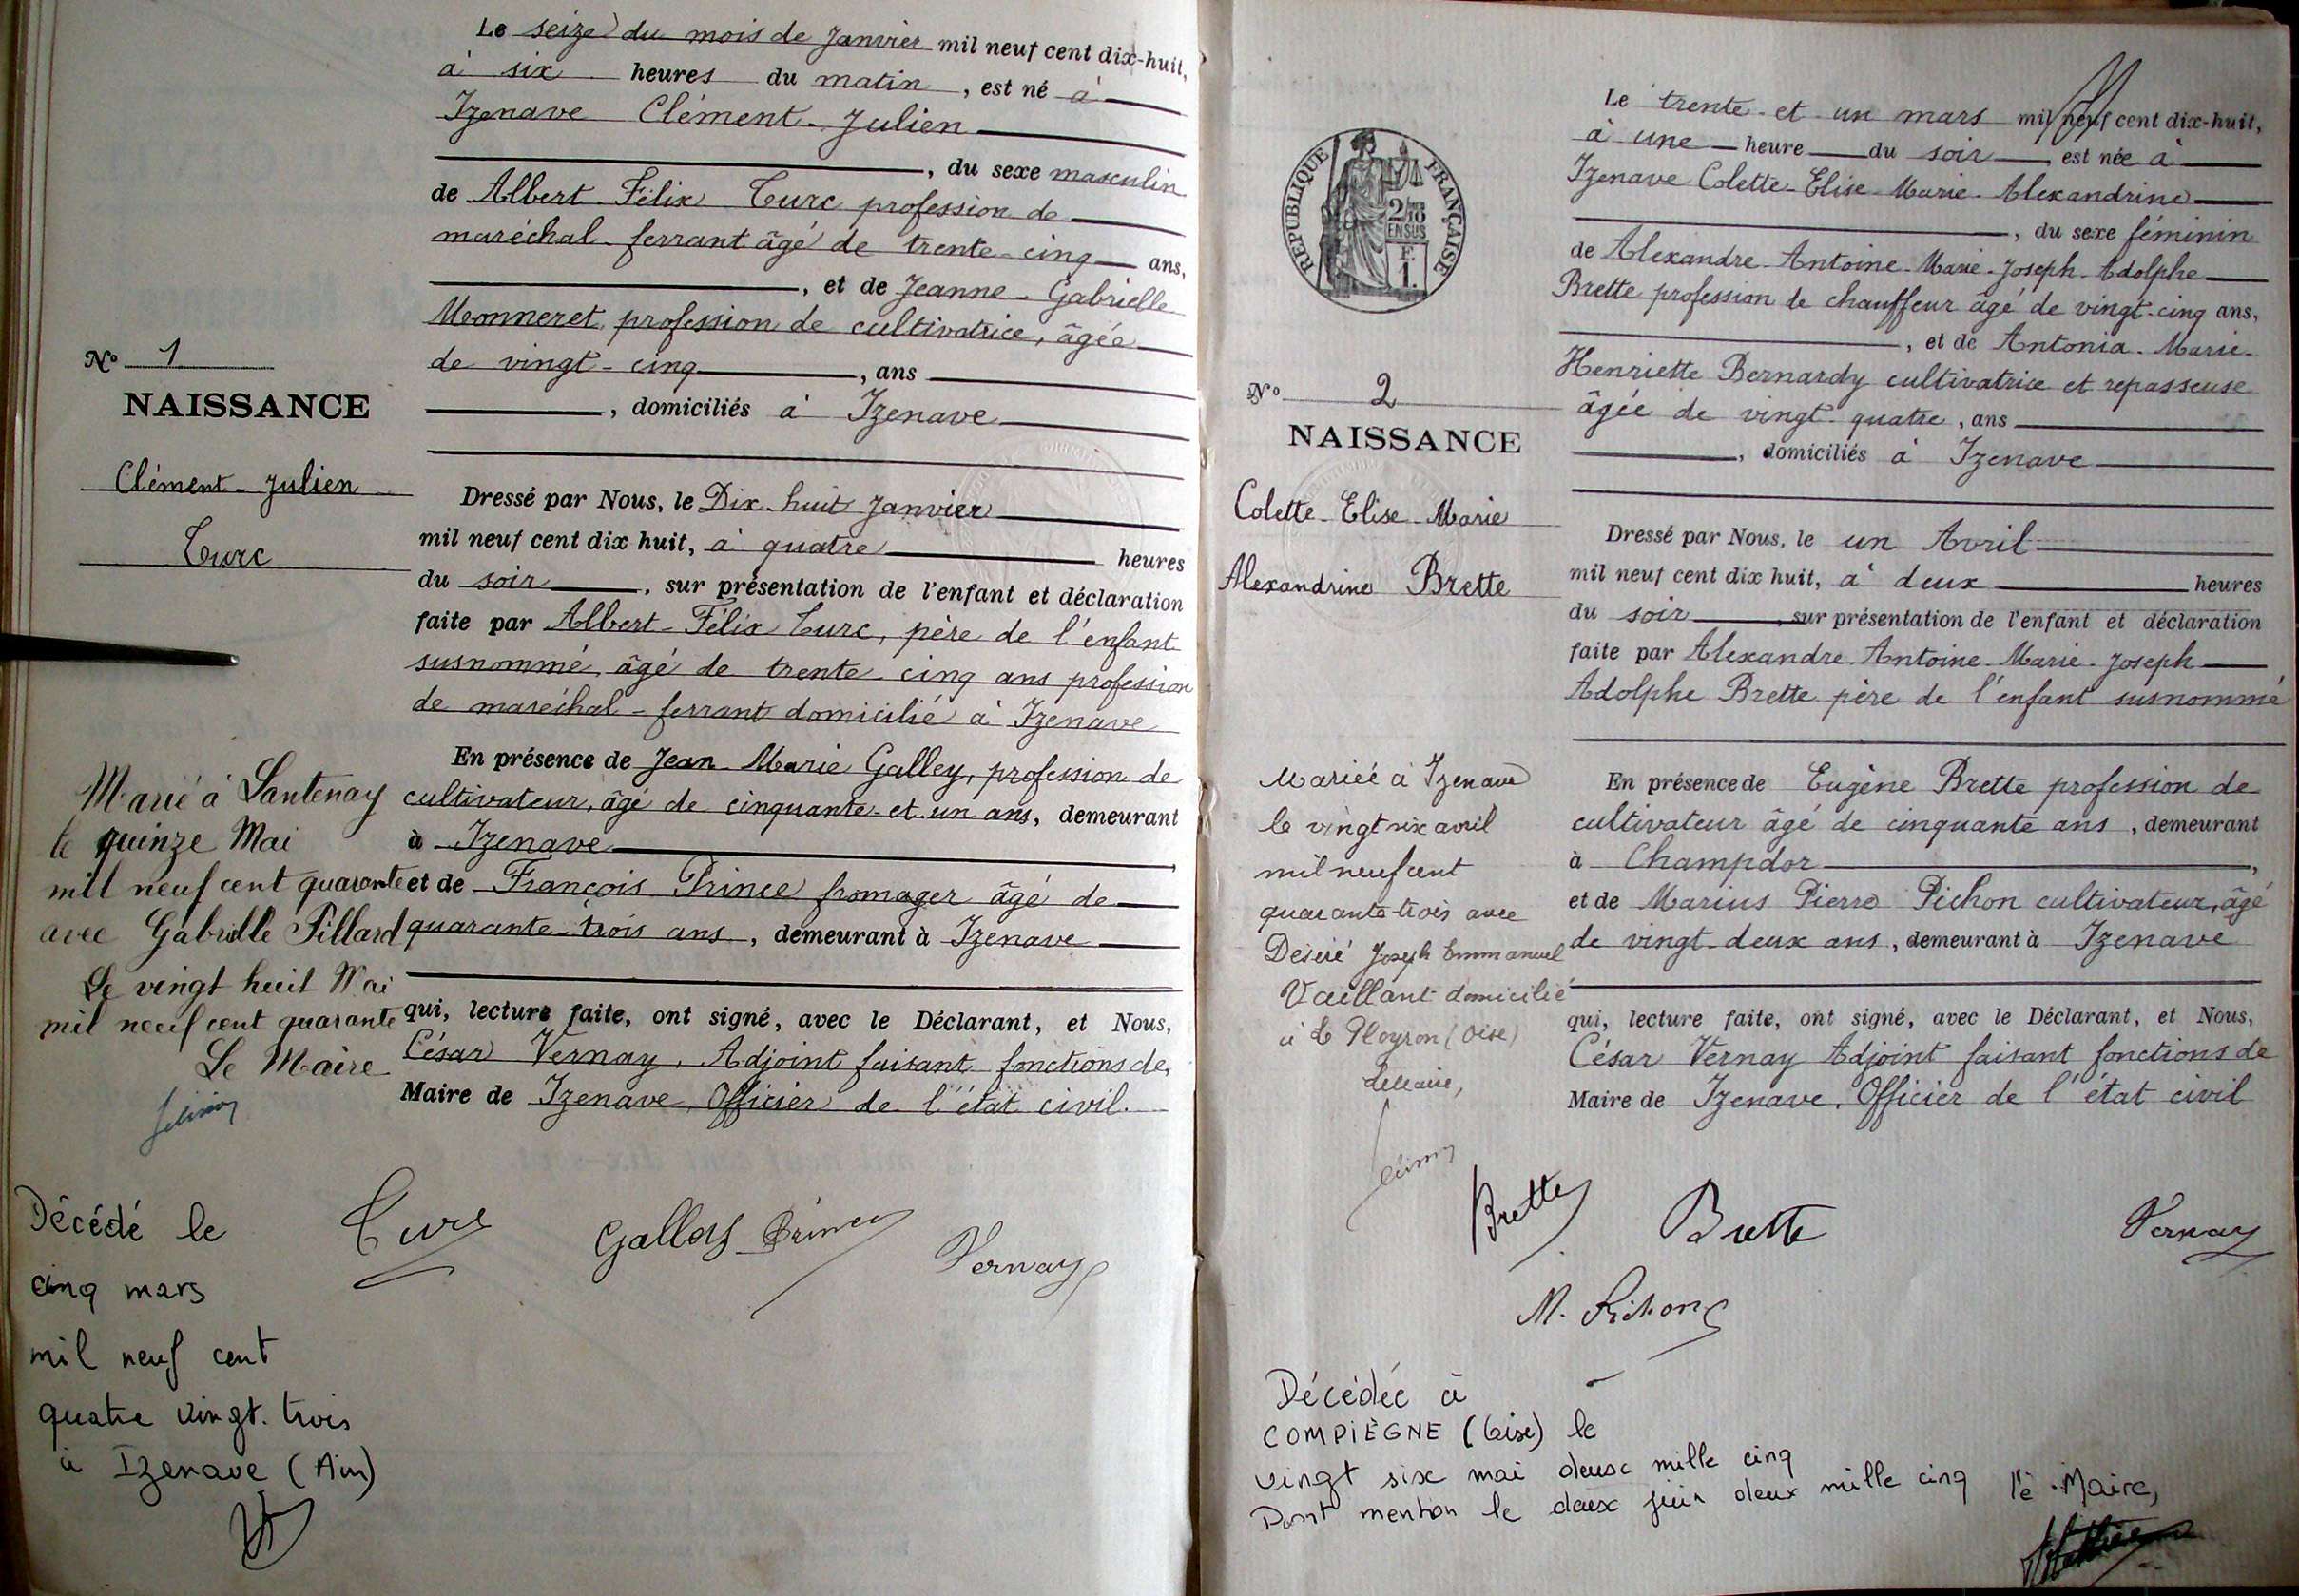 Le seize du mois de Janvier mil neuf cent dix-huit,
à six heures du matin, est né à
Izenave Clément-Julien
, du sexe masculin
de Albert-Félix Turc profession de
maréchal-ferrant âgé de trente-cinq ans,
, et de Jeanne-Gabrielle
Monneret, profession de cultivatrice, âgée
de vingt-cinq, ans
, domiciliés à Izenave
N° 1
NAISSANCE
Clément-Julien
Turc
Dressé par Nous, le Dix-huit Janvier
mil neuf cent dix huit, à quatre heures
du soir, sur présentation de l'enfant et déclaration
faite par Albert-Félix Turc, père de l'enfant
susnommé, âgé de trente-cinq ans profession
de maréchal-ferrant domicilié à Izenave
En présence de Jean-Marie Galley, profession de
cultivateur, âgé de cinquante-et-un ans, demeurant
à Izenave
et de François Prince fromager âgé de
quarante-trois ans, demeurant à Izenave
qui, lecture faite, ont signé, avec le Déclarant, et Nous,
César Vernay, Adjoint faisant fonctions de,
Maire de Izenave, Officier de l'état civil.
Marié à Lantenay
le quinze Mai
mil neuf cent quarante
avec Gabrielle Pillard
Le vingt huit Mai
mil neuf cent quarante
Le Maire
Turc
Galley
Prince
Vernay
Décédé le
cinq mars
mil neuf cent
quatre vingt-trois
à Izenave (Ain)
RÉPUBLIQUE FRANÇAISE
2/10
EN SUS
F.
1.
Le trente-et-un mars mil neuf cent dix-huit,
à une heure du soir, est née à
Izenave Colette-Elise-Marie-Alexandrine
, du sexe féminin
de Alexandre-Antoine-Marie-Joseph-Adolphe
Brette profession de chauffeur âgé de vingt-cinq ans,
, et de Antonia-Marie-
Henriette Bernardy cultivatrice et repasseuse
âgée de vingt-quatre, ans
, domiciliés à Izenave
N° 2
NAISSANCE
Colette-Elise-Marie
Alexandrine Brette
Dressé par Nous, le un Avril
mil neuf cent dix huit, à deux heures
du soir, sur présentation de l'enfant et déclaration
faite par Alexandre-Antoine-Marie-Joseph
Adolphe Brette père de l'enfant susnommé
En présence de Eugène Brette profession de
cultivateur âgé de cinquante ans, demeurant
à Champdor,
et de Marius Pierre Pichon cultivateur, âgé
de vingt-deux ans, demeurant à Izenave
qui, lecture faite, ont signé, avec le Déclarant, et Nous,
César Vernay Adjoint faisant fonctions de
Maire de Izenave, Officier de l'état civil
Mariée à Izenave
le vingt six avril
mil neuf cent
quarante-trois avec
Désiré Joseph Emmanuel
Vaillant domicilié
à Le Ployron (Oise)
Le Maire,
Brette
Brette
Vernay
M. Pichon
Décédée à
COMPIÈGNE (Oise) le
vingt six mai deux mille cinq
Dont mention le deux juin deux mille cinq Le Maire,